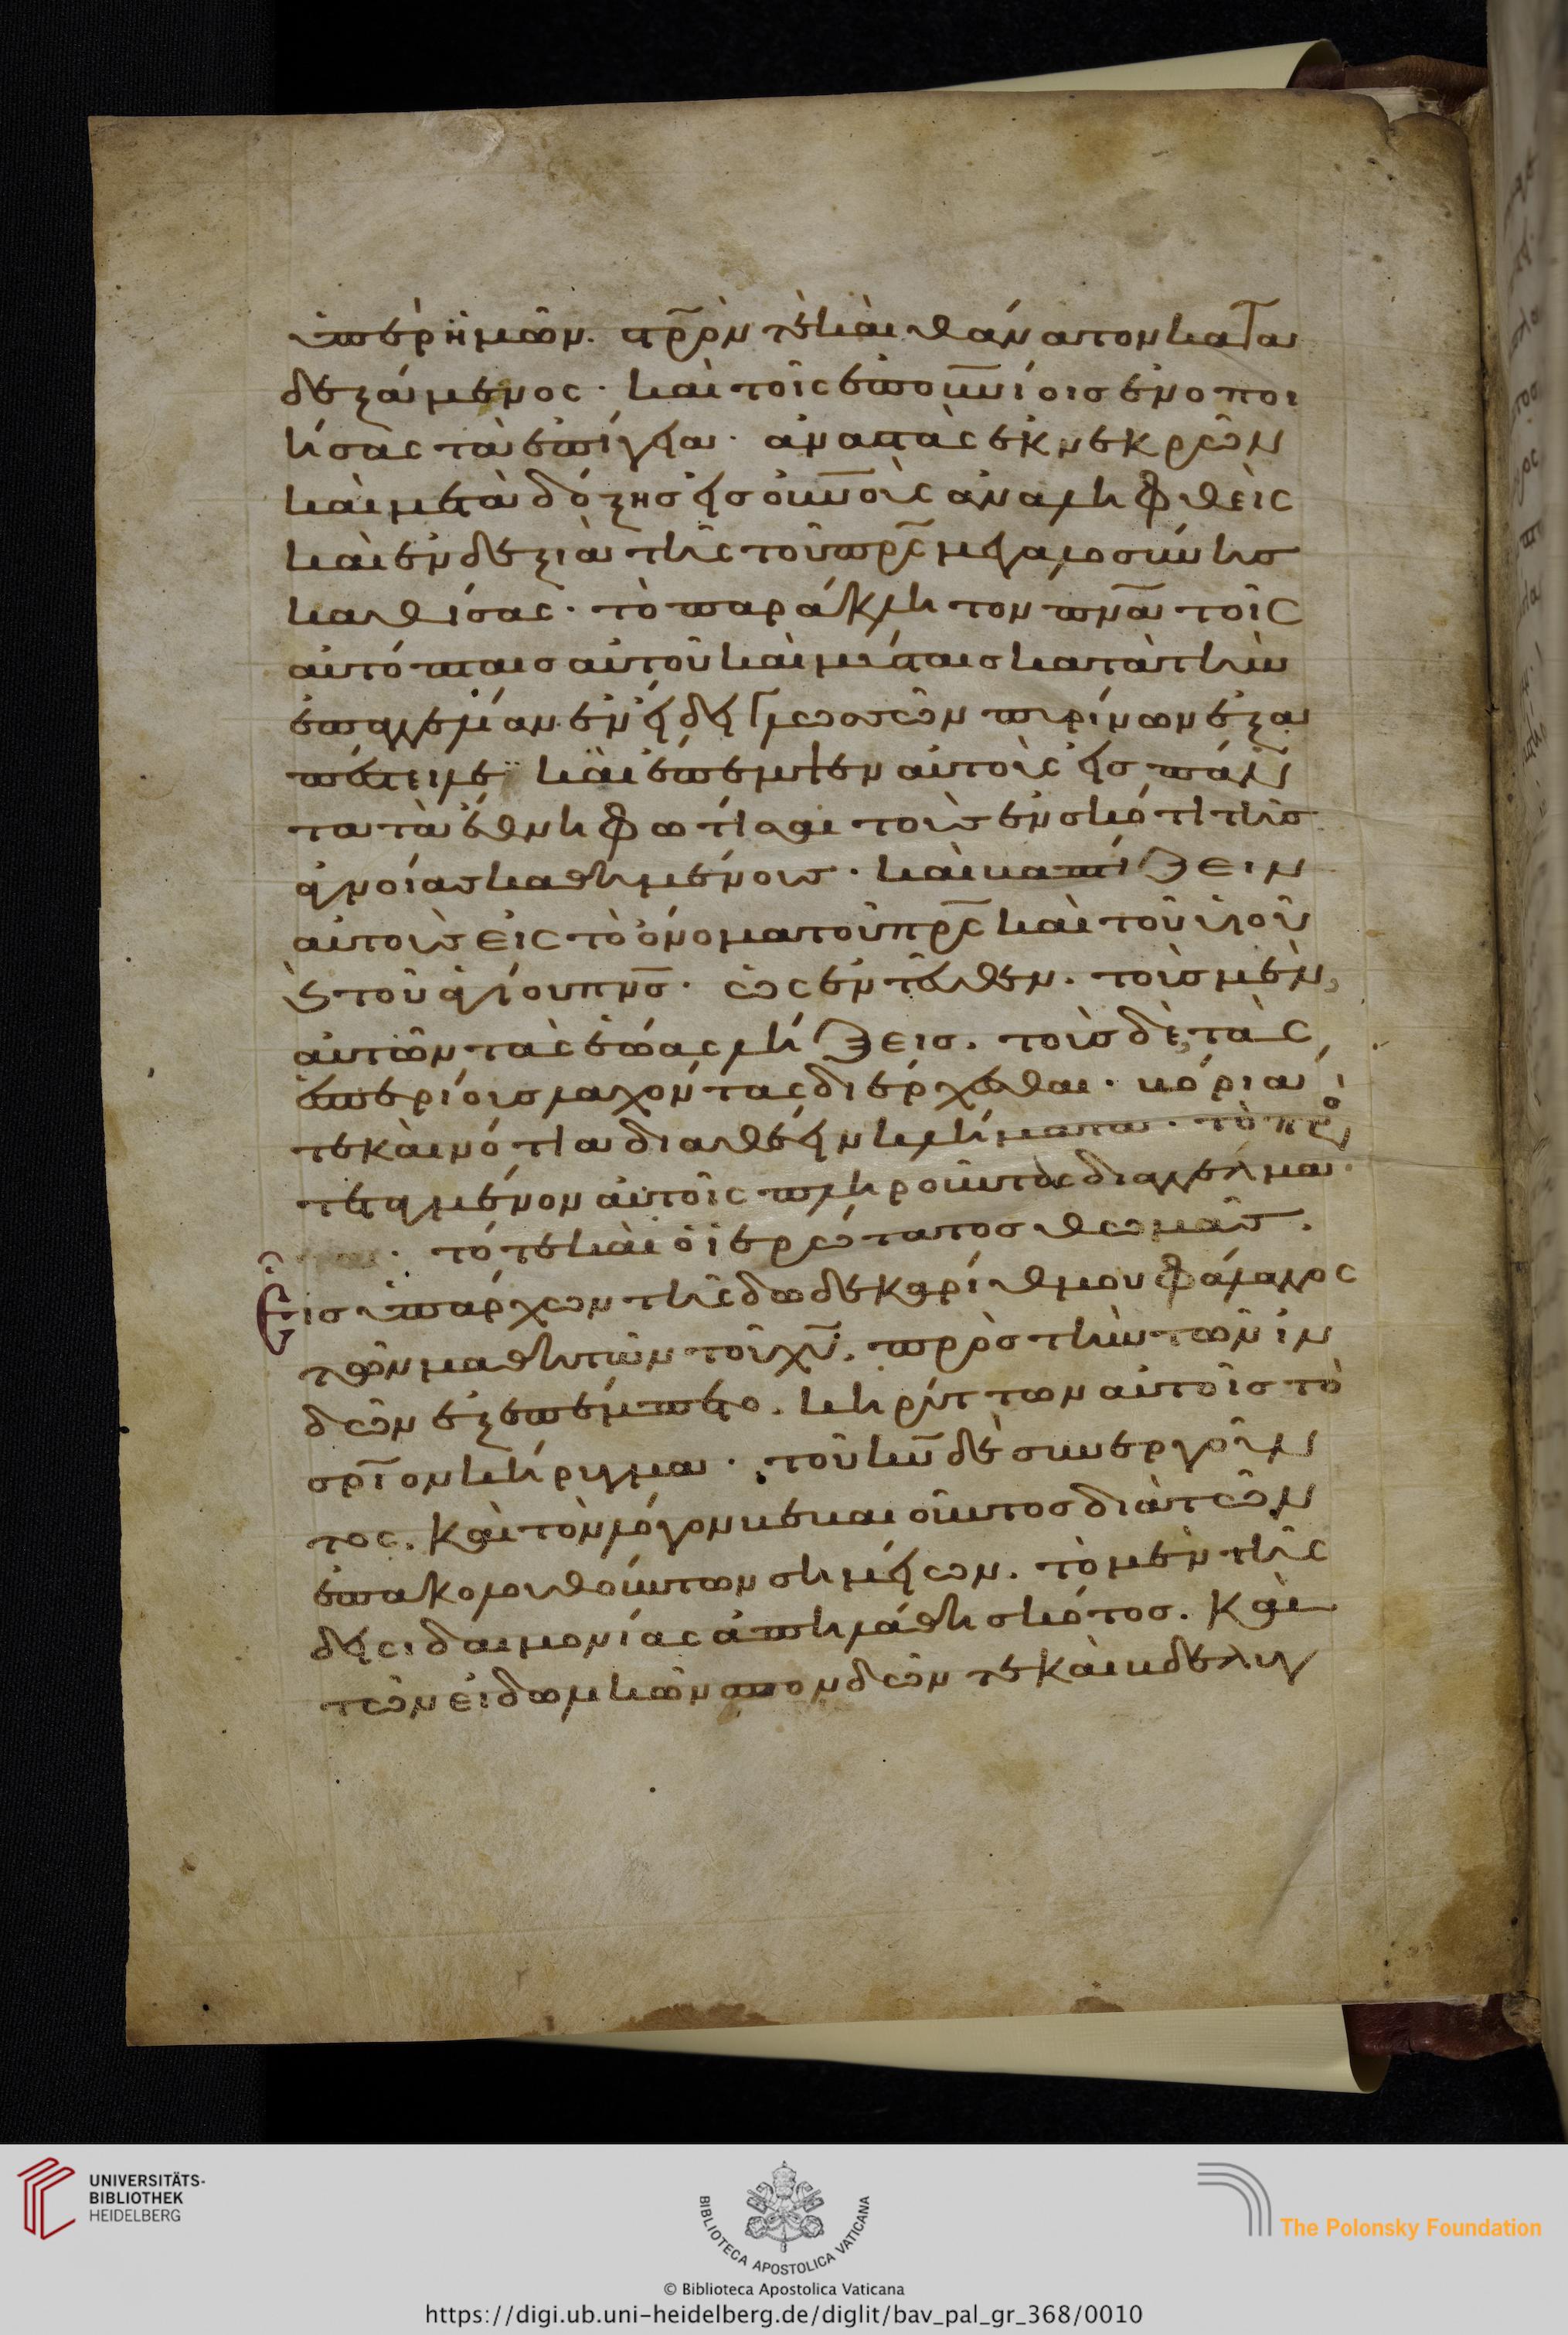 ὑπὲρ ἡμῶν. στρ̅ὸν τὲ καὶ θάνατον κατα
δεξάμενος· καὶ τοῖς ἐπου̅νίοις ἑνοποι
ήσας τὰ ἐπίγεια· ἀναστὰς ἐκ νεκρῶν
καὶ μετὰ δόξης εἰς οὐ̅νοὺς ἀναληφθεὶς
καὶ ἐν δεξιᾶ τῆς τοῦ πρ̅ς μεγαλοσύνης
καθίσας· τὸ παράκλητον πν̅α τοῖς
αὐτόπταις αὐτοῦ καὶ μύσταις κατὰ τὴν
ἐπαγγελίαν ἐν εἴδει γλωσσῶν πυρίνων ἐξα
πέστειλε· καὶ ἔπεμψεν αὐτοὺς εἰς πάν
τα τὰ ἔθνη φωτίσαι τοὺς ἐν σκότει τῆς
ἀγνοίας καθημένους· καὶ βαπτίζειν
αὐτοὺς εἰς τὸ ὄνομα τοῦ πρ̅ς καὶ τοῦ υἱοῦ
καὶ τοῦ ἁγίου πν̅ς· ὡς ἐντεῦθεν. τοὺς μὲν
αὐτῶν τὰς ἑώας λήξεις. τοὺς δὲ τὰς
ἑσπερίους λαχόντας διέρχεσθαι· βόρειά
τε καὶ νότια διαθέειν κλήματα· τὸ προσ
τεταγμένον αὐτοῖς πληροῦντας διάγγελμα·
τότε καὶ ὁ ἱερώτατος θωμᾶς.
Εἷς ὑπάρχων τῆς δωδεκαρίθμου φάλαγγος
τῶν μαθητῶν τοῦ χυ̅. πρὸς τὴν τῶν ἰν
δῶν ἐξεπέμπετο. κηρύττων αὐτοῖς τὸ
σρ̅ιον κήρυγμα· τοῦ κυ̅ δὲ συνεργοῦν
τος. καὶ τὸν λόγον βεβαιοῦντος διὰ τῶν
ἐπακολουθούντων σημείων. τὸ μὲν τῆς
δεισιδαιμονίας ἀπηλάθη σκότος. καὶ
τῶν εἰδωλικῶν σπονδῶν τε καὶ βδελυγ
UNIVERSITÄTS-
BIBLIOTHEK
HEIDELBERG
BIBLIOTECA APOSTOLICA VATICANA
The Polonsky Foundation
© Biblioteca Apostolica Vaticana
https://digi.ub.uni-heidelberg.de/diglit/bav_pal_gr_368/0010